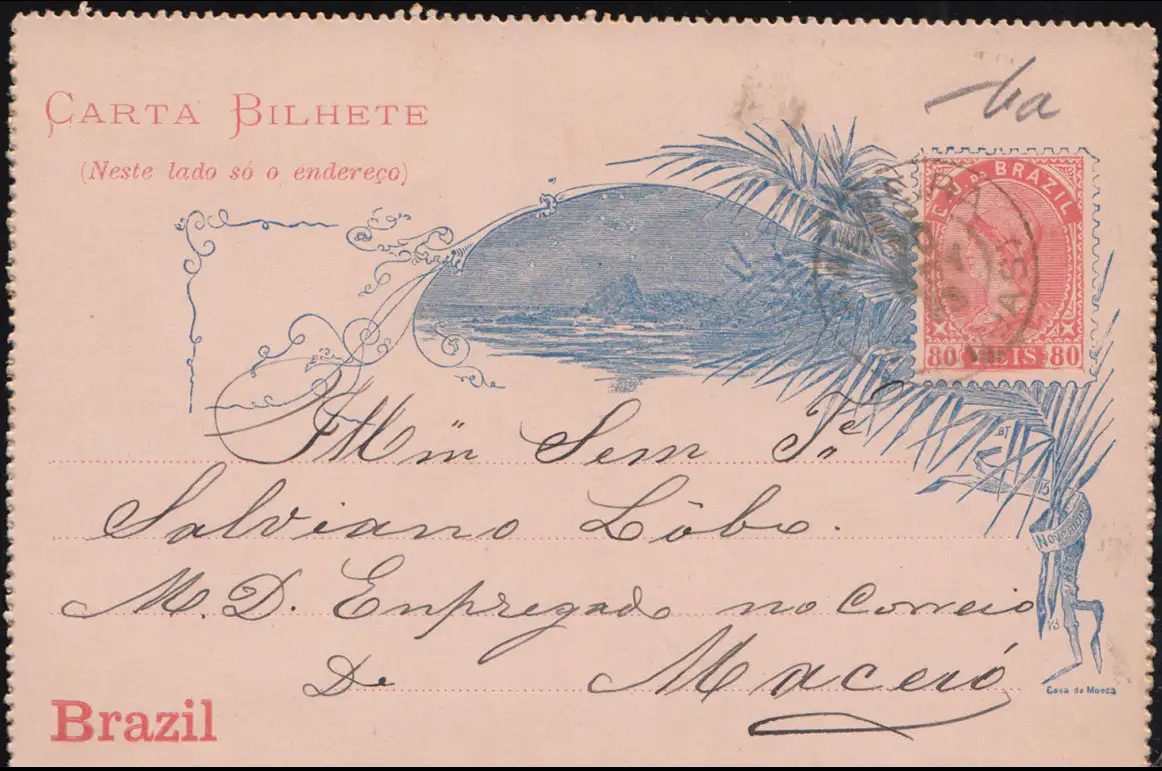 CARTA BILHETE
(Neste lado só o endereço)
E. U. DO BRAZIL
80 REIS 80
Sem
Salviano Lôbo.
M. D. Enpregado no Correio
De Maceió
15
Novembro
Brazil
Casa da Moeda